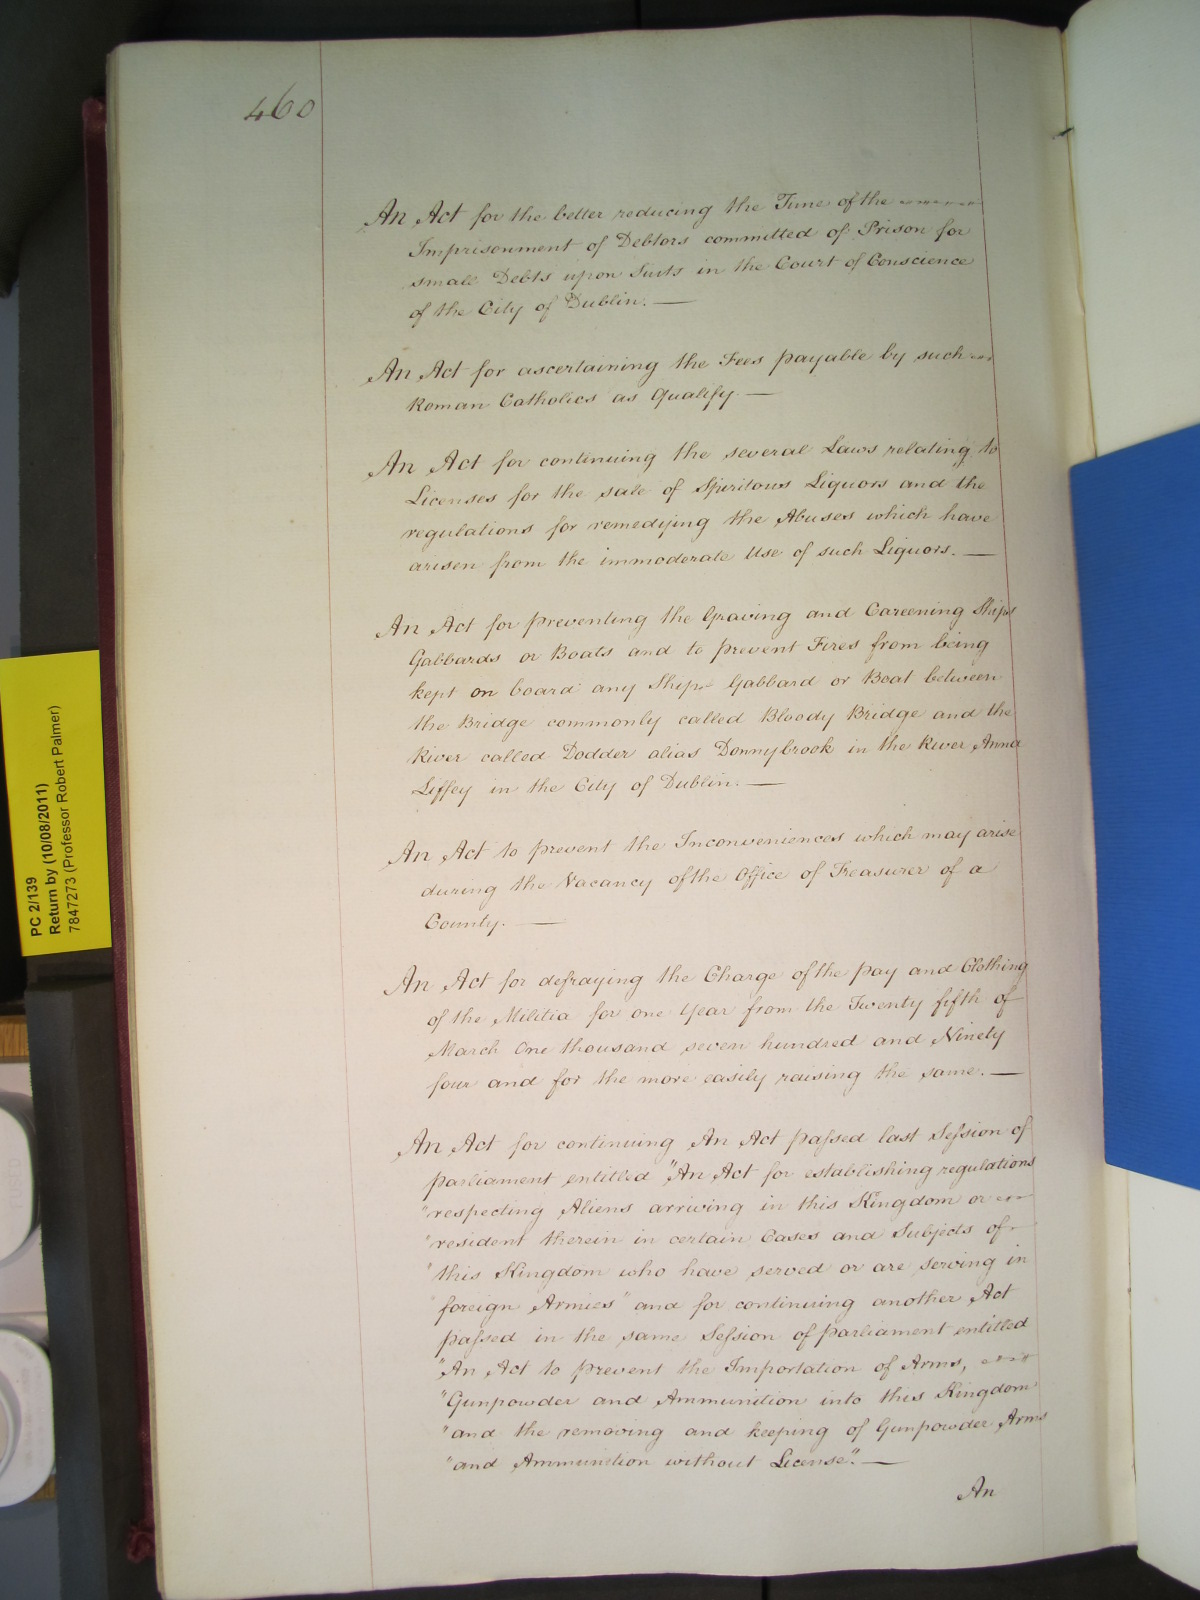 460
An Act for the better reducing the Time of the
Imprisonment of Debtors committed of Prison for
small Debts upon Suits in the Court of Conscience
of the City of Dublin. —
An Act for ascertaining the Fees payable by such
Roman Catholics as Qualify —
An Act for continuing the several Laws relating to
Licenses for the sale of Spiritous Liquors and the
regulations for remedying the Abuses which have
arisen from the immoderate Use of such Liquors. —
An Act for preventing the Graving and Careening Ships
Gabbards or Boats and to prevent Fires from being
kept on board any Ship Gabbard or Boat between
the Bridge commonly called Bloody Bridge and the
River called Dodder alias Donnybrook in the River Anna
Liffey in the City of Dublin. —
An Act to prevent the Inconveniences which may arise
during the Vacancy of the Office of Treasurer of a
County. —
An Act for defraying the Charge of the pay and Clothing
of the Militia for one Year from the Twenty fifth of
March One thousand seven hundred and Ninety
four and for the more easily raising the same. —
An Act for continuing An Act passed last Session of
parliament entitled "An Act for establishing regulations
"respecting Aliens arriving in this Kingdom or
"resident therein in certain Cases and Subjects of
"this Kingdom who have served or are serving in
"foreign Armies" and for continuing another Act
passed in the same Session of parliament entitled
"An Act to prevent the Importation of Arms,
"Gunpowder and Ammunition into this Kingdom
"and the removing and keeping of Gunpowder Arms
"and Ammunition without License". —
An
PC 2/139
Return by (10/08/2011)
7847273 (Professor Robert Palmer)